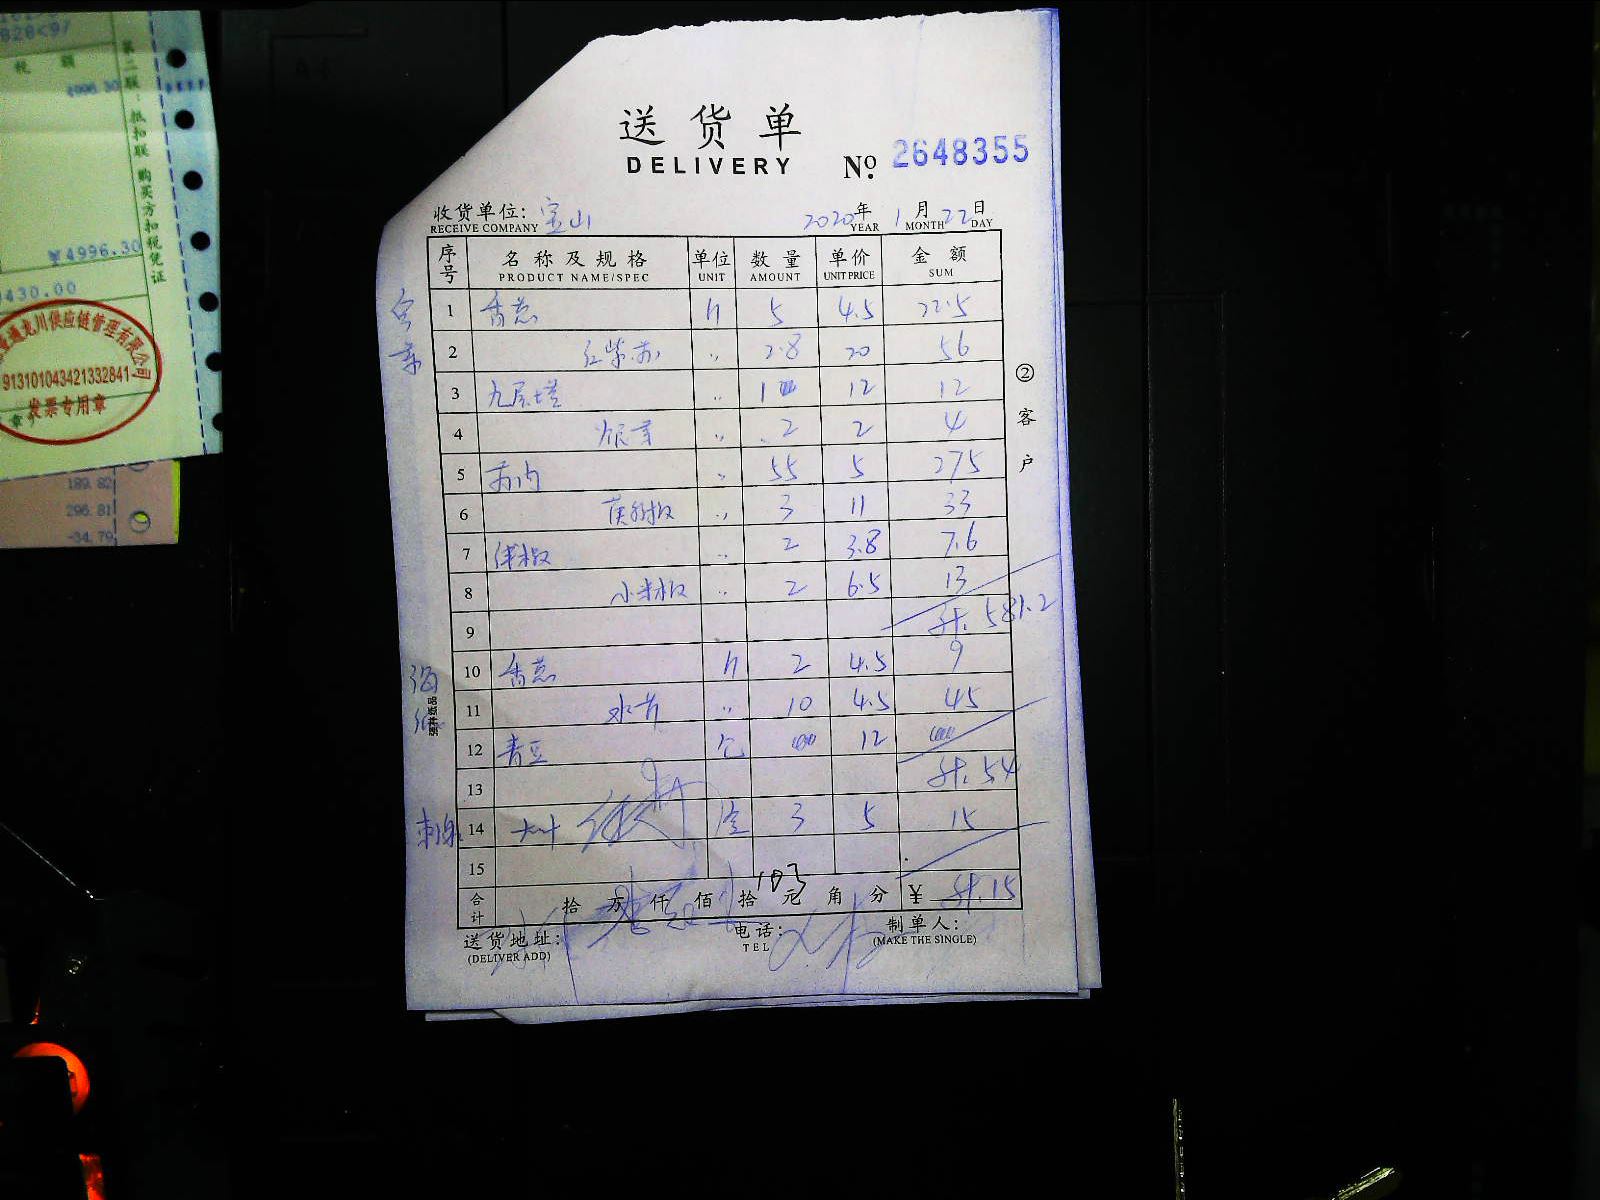 税 额
4996.30
第二联：抵扣联 购买方扣税凭证
¥4996.30
430.00
通龙川供应链管理有限公司
913101043421332841
发票专用章
189.82
296.81
-34.79
送货单
DELIVERY No. 2648355
收货单位: 宝山 2020年 1月 22日
RECEIVE COMPANY YEAR MONTH DAY
序号 名称及规格 单位 数量 单价 金额
PRODUCT NAME/SPEC UNIT AMOUNT UNIT PRICE SUM
1 香葱 斤 5 4.5 22.5
2 红紫苏 〃 2.8 20 56
3 九层塔 〃 1 12 12
4 〃 2 2 4
5 〃 55 5 275
6 〃 3 11 33
7 〃 2 3.8 7.6
8 小米椒 〃 2 6.5 13
9 计. 581.2
10 香葱 斤 2 4.5 9
11 〃 10 4.5 45
12 青豆 12
13 计. 54
14 大叶 3 5 15
15
合计 拾 万 仟 佰 拾 元 角 分 ¥ 计.15
送货地址: 电话: 制单人:
(DELIVER ADD) TEL (MAKE THE SINGLE)
②客户